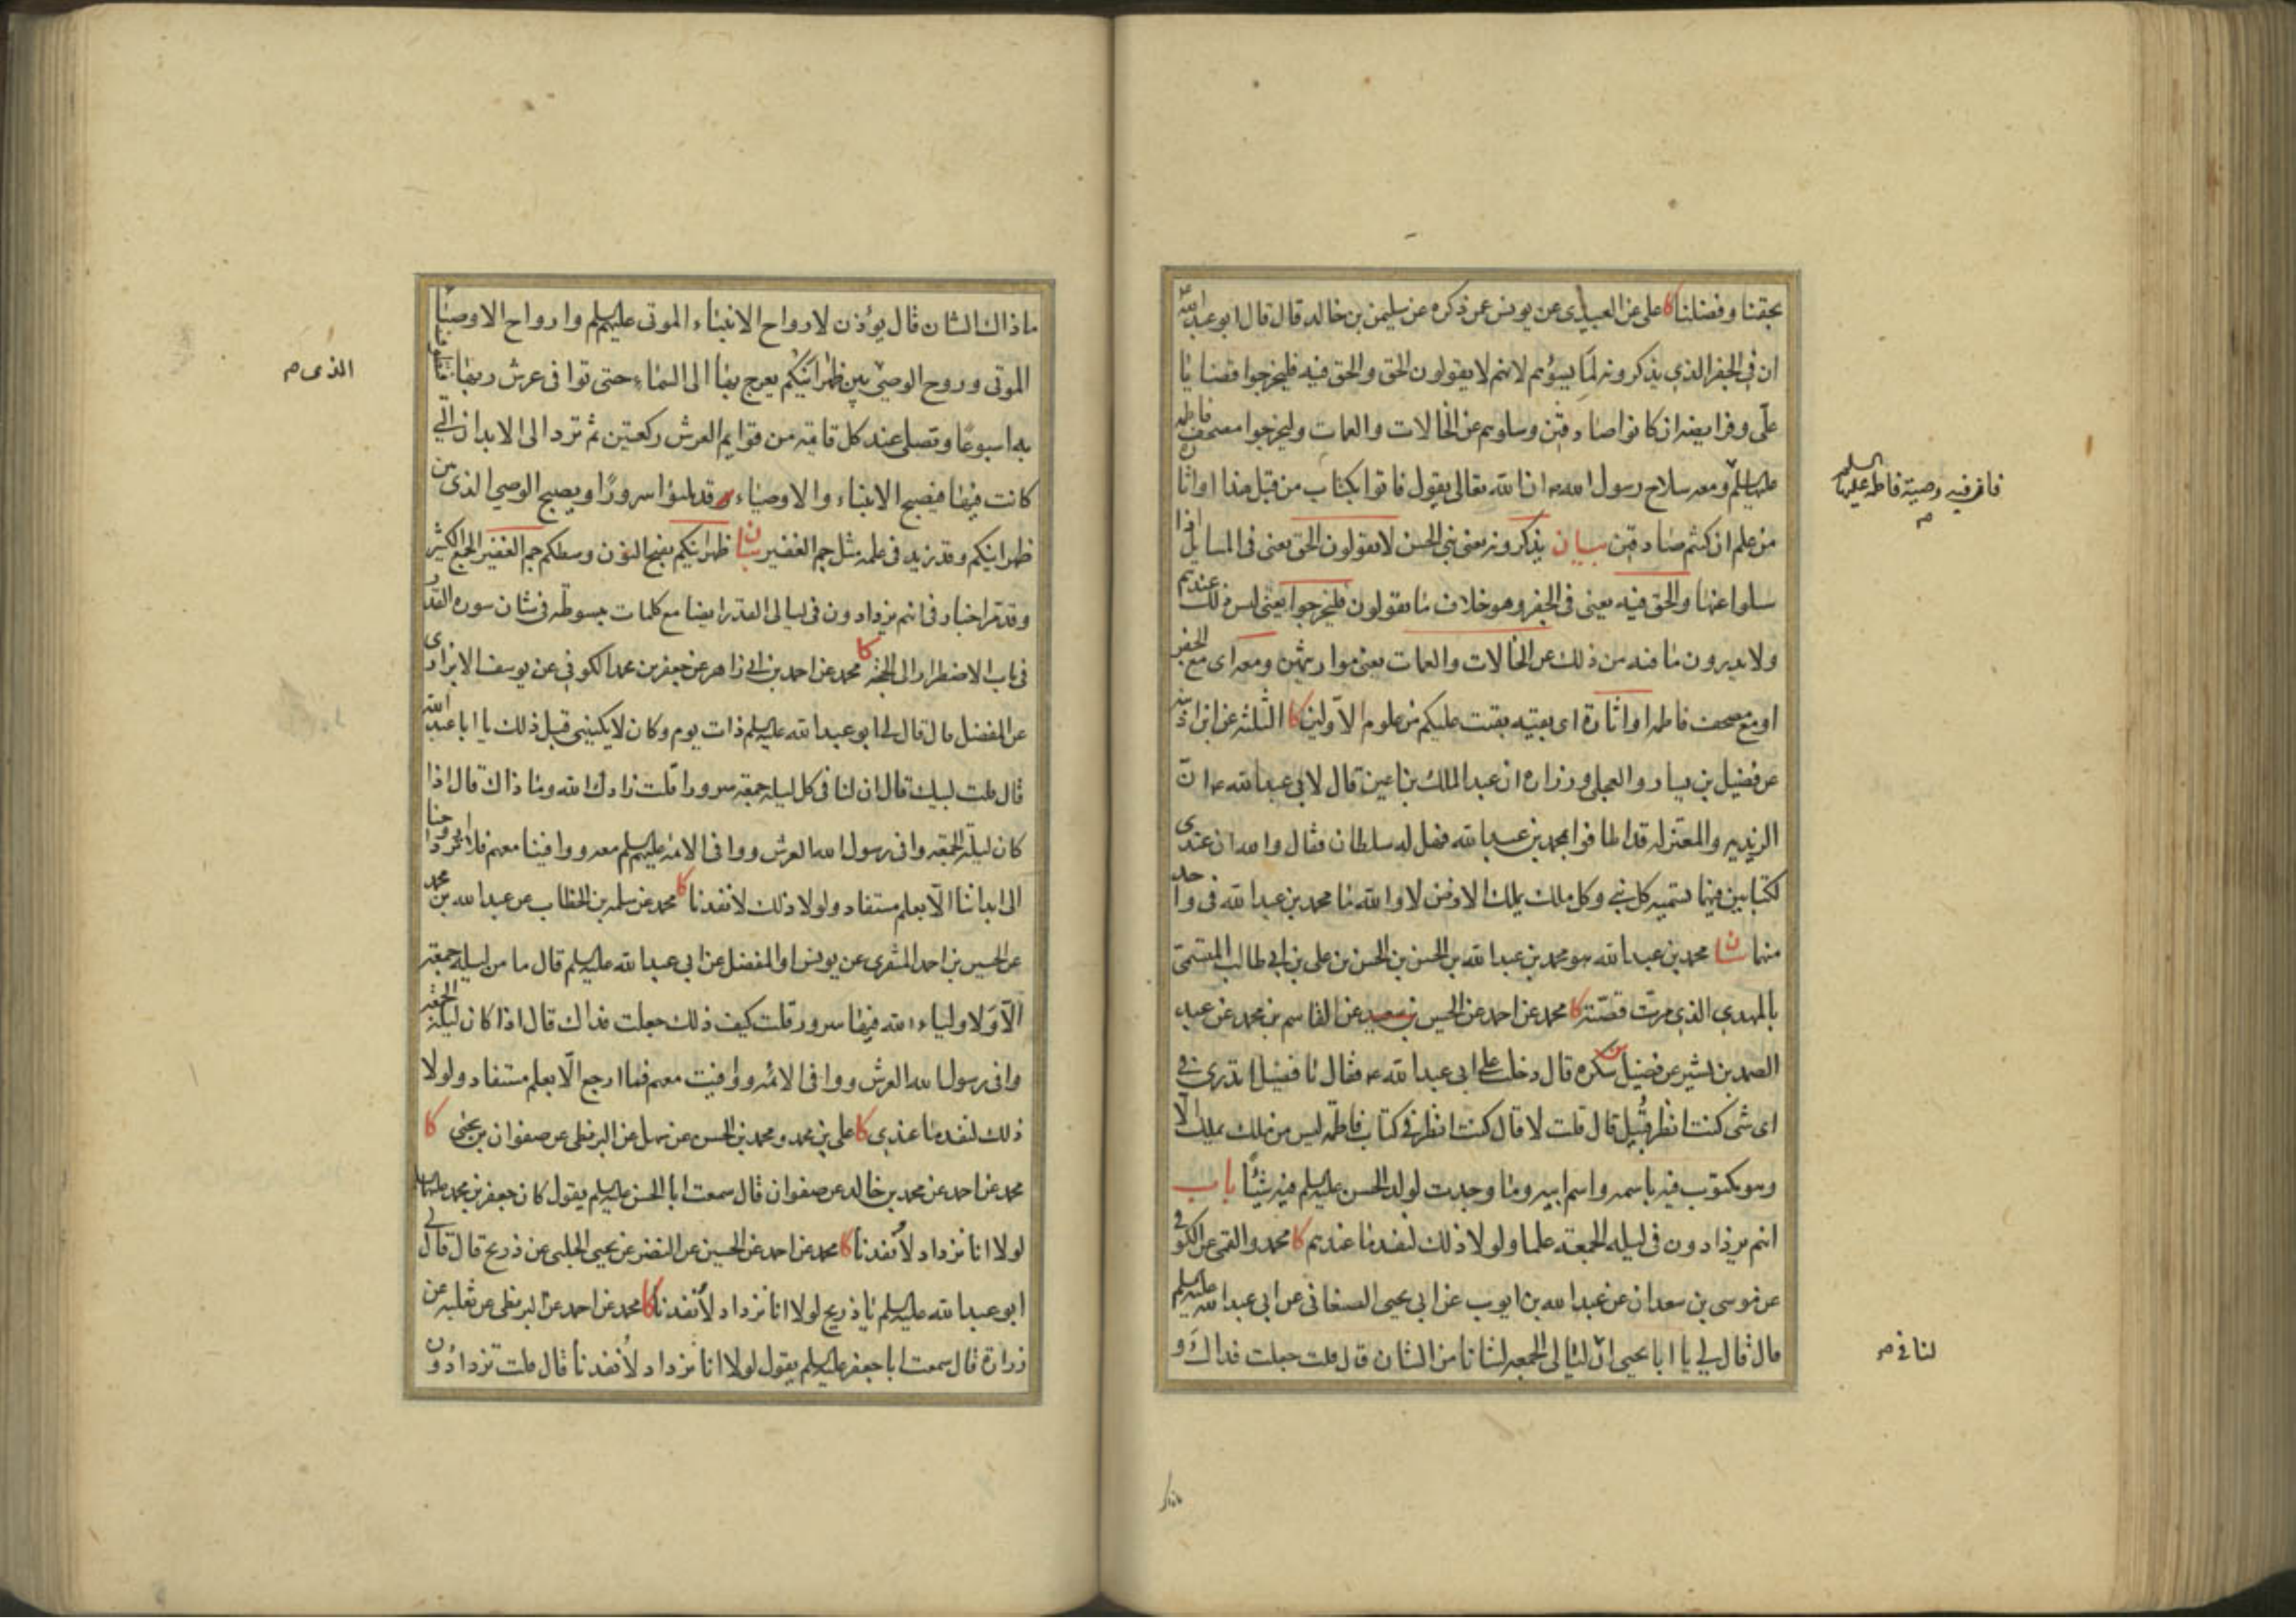 بحقنا وفضلنا كا علي عن العبيدي عن يونس عمن ذكره عن سليمن بن خالد قال قال ابو عبد الله ع
ان في الجفر الذي يذكرونه لما يسؤهم لانهم لا يقولون الحق والحق فيه فليخرجوا قضايا
علي وفرايضه ان كانوا صادقين وسلوهم عن الخالات والعمات وليخرجوا مصحف فاطمه
عليها السلم ومعه سلاح رسول الله ص ان الله تعالى يقول فاتوا بكتاب من قبل هذا او اثارة
فان فيه وصية فاطمه عليها السلم
من علم ان كنتم صادقين بيان يذكرونه يعني بني الحسن لا يقولون الحق يعني في المسايل اذا
سلوا عنها والحق فيه يعني في الجفر وهو خلاف ما يقولون فليخرجوا يعني ليس ذلك عندهم
ولا يدرون ما فيه من ذلك عن الخالات والعمات يعني مواريثهن ومعه اي مع الجفر
او مع مصحف فاطمه او اثارة اي بقيه بقيت عليكم من علوم الاولين كا الثلثه عن ابن اذينه
عن فضيل بن يسار والعجلي وزراره ان عبد الملك بن اعين قال لابي عبد الله ع ان
الزيديه والمعتزله قد اطافوا بمحمد بن عبد الله فهل له سلطان فقال والله ان عندي
لكتابين فيهما تسميه كل نبي وكل ملك يملك الارض لا والله ما محمد بن عبد الله في واحد
منهما بيان محمد بن عبد الله هو محمد بن عبد الله بن الحسن بن الحسن بن علي بن ابي طالب المسمى
بالمهدي الذي مرت قصته كا محمد عن احمد عن الحسين بن سعيد عن القاسم بن محمد عن عبد
الصمد بن بشير عن فضيل بن سكره قال دخلت على ابي عبد الله ع فقال يا فضيل اتدري في
اي شي كنت انظر قبيل قال قلت لا قال كنت انظر في كتاب فاطمه ليس من ملك يملك الا
وهو مكتوب فيه باسمه واسم ابيه وما وجدت لولد الحسن عليه السلم فيه شيئا باب
انهم يزدادون في ليله الجمعه علما ولولا ذلك لنفد ما عندهم كا محمد والقمي عن الكوفي
عن موسى بن سعدان عن عبد الله بن ايوب عن ابي يحيى الصنعاني عن ابي عبد الله عليه السلم
قال قال لي يا ابا يحيى ان ليالي الجمعه لشانا من الشان قال قلت جعلت فداك و
لنا في
ماذاك الشان قال يؤذن لارواح الانبياء الموتى عليهم السلم وارواح الاوصياء
الموتى وروح الوصي بين ظهرانيكم يعرج بها الى السماء حتى توافي عرش ربها فتطوف
الذي
به اسبوعا وتصلي عند كل قايمه من قوايم العرش ركعتين ثم ترد الى الابدان التي
كانت فيها فيصبح الانبياء والاوصياء قد ملئوا سرورا ويصبح الوصي الذي بين
ظهرانيكم وقد زيد في علمه مثل جم الغفير بيان ظهرانيكم بفتح النون وسطكم جم الغفير الجمع الكثير
وقد مر اخبار في انهم يزدادون في ليالي القدر ايضا مع كلمات مبسوطه في شان سوره القدر
في باب الاضطرار الى الحجه كا محمد عن احمد بن ابي زاهر عن جعفر بن محمد الكوفي عن يوسف الابزاري
عن المفضل قال قال لي ابو عبد الله عليه السلم ذات يوم وكان لا يكنيني قبل ذلك يا ابا عبد الله
قال قلت لبيك قال ان لنا في كل ليله جمعه سرورا قلت زادك الله وما ذاك قال اذا
كان ليله الجمعه وافى رسول الله العرش ووافى الائمه عليهم السلم معه ووافينا معهم فلا ترد ارواحنا
الى ابداننا الا بعلم مستفاد ولولا ذلك لانفدنا كا محمد عن سلمه بن الخطاب عن عبد الله بن محمد
عن الحسين بن احمد المنقري عن يونس او المفضل عن ابي عبد الله عليه السلم قال ما من ليله جمعه
الا ولاولياء الله فيها سرور قلت كيف ذلك جعلت فداك قال اذا كان ليله الجمعه
وافى رسول الله العرش ووافى الائمه ووافيت معهم فما ارجع الا بعلم مستفاد ولولا
ذلك لنفد ما عندي كا علي بن محمد ومحمد بن الحسن عن سهل عن البزنطي عن صفوان بن يحيى كا
محمد عن احمد عن محمد بن خالد عن صفوان قال سمعت ابا الحسن عليه السلم يقول كان جعفر بن محمد عليهما السلم
لولا انا نزداد لأنفدنا كا محمد عن احمد عن الحسين عن النضر عن يحيى الحلبي عن ذريح قال قال لي
ابو عبد الله عليه السلم يا ذريح لولا انا نزداد لأنفدنا كا محمد عن احمد عن البزنطي عن ثعلبه عن
زرارة قال سمعت ابا جعفر عليه السلم يقول لولا انا نزداد لأنفدنا قال قلت تزدادون